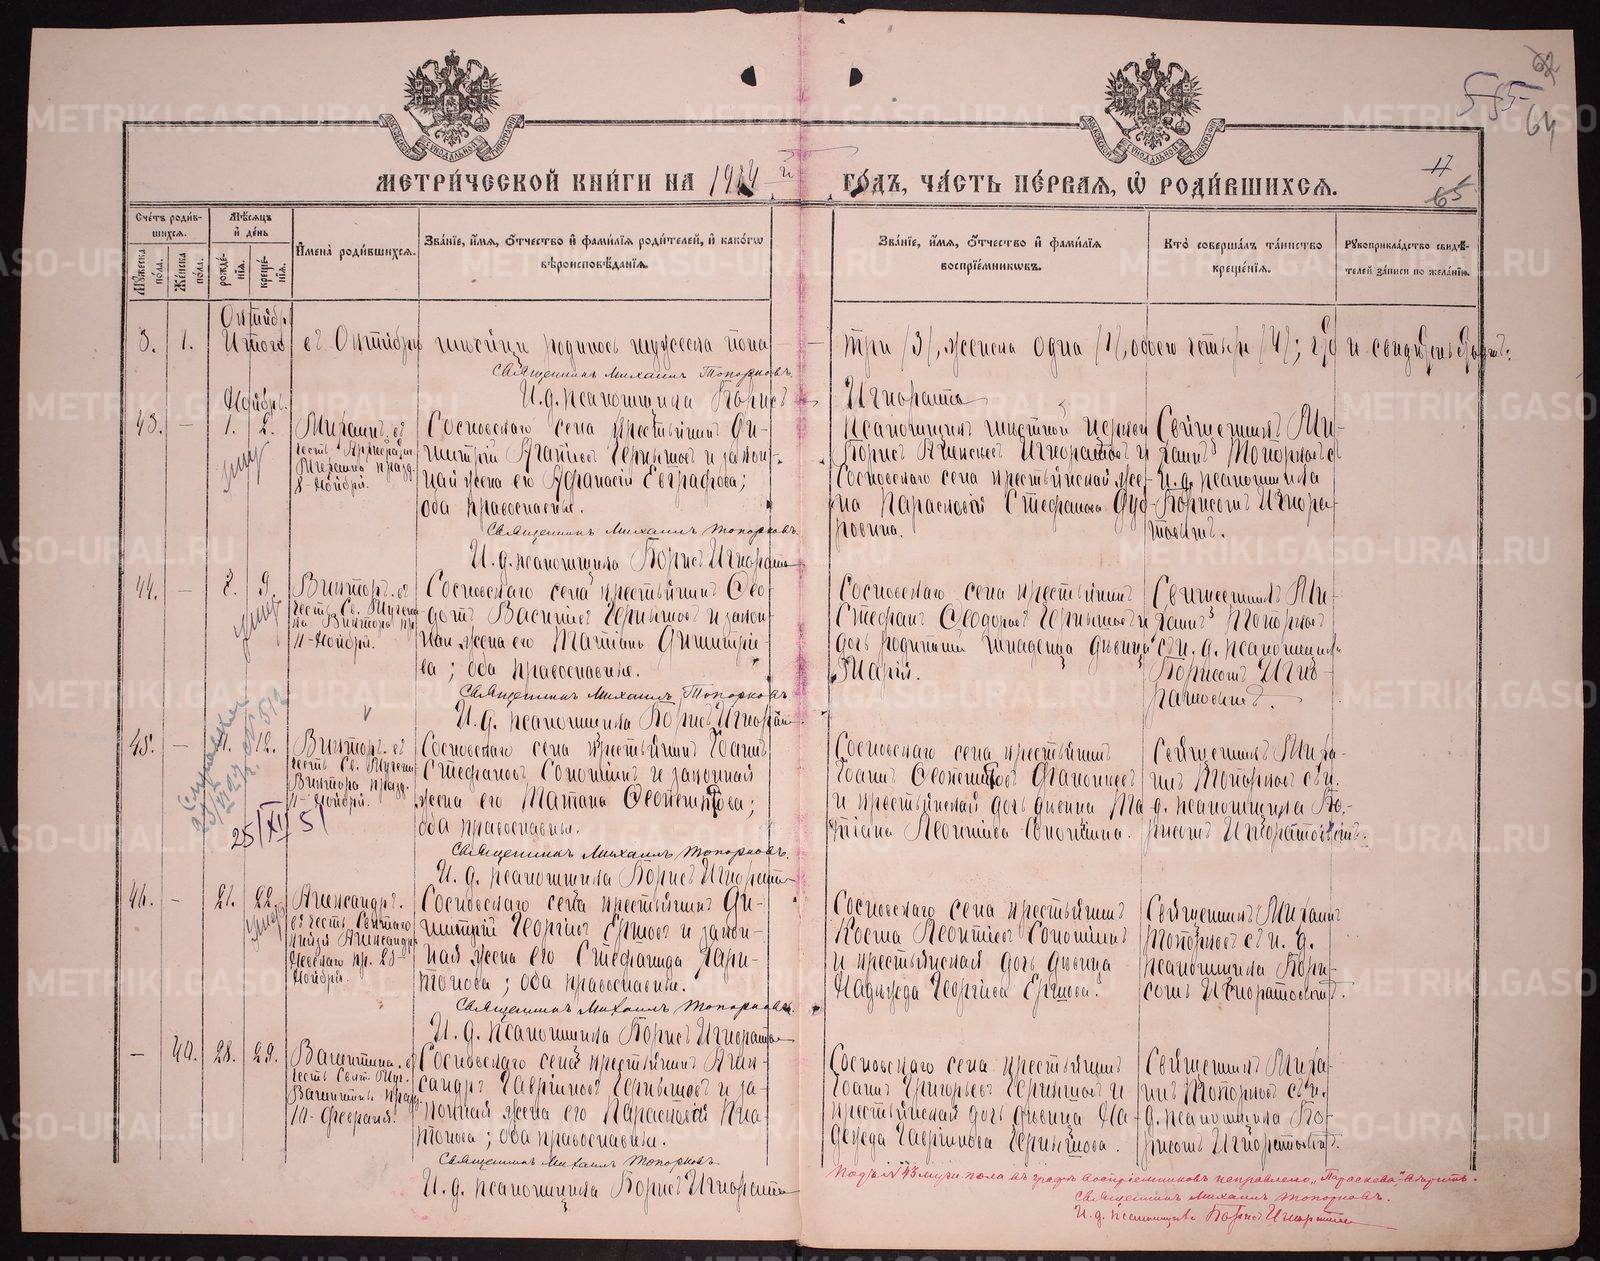 МЕТРИ́ЧЕСКОЙ КНИ́ГИ НА 1914 й ГО́ДЪ, ЧА́СТЬ ПЕ́РВАЯ, Ѡ҆ РОДИ́ВШИХСЯ.
585
64
17
65
Сче́тъ роди́вшихся.
Мѣ́сяцъ и҆ де́нь
Мꙋ́жеска по́ла.
Же́нска по́ла.
рожде́нїя.
креще́нїя.
И҆мена̀ роди́вшихся.
Зва́нїе, и҆́мя, ѻ҆́тчество и҆ фами́лїя роди́телей, и҆ како́гѡ вѣроисповѣ́данїя.
Зва́нїе, и҆́мя, ѻ҆́тчество и҆ фами́лїя воспрїе́мникѡвъ.
Кто̀ соверша́лъ та́инство креще́нїя.
Рꙋкоприкла́дство свидѣ́телей за́писи по жела́нїю.
Октябрь
3. 1. Итого въ Октябрѣ мѣсяцѣ родилось мужеска пола три /3/, женска одна /1/, обоего четыре /4/;
Священникъ Михаилъ Топорковъ.
И. д. псаломщика Борисъ Игноратовъ
Ноябрь.
43. — 1. 2.
умер
Михаилъ. въ
честь Архистрати.
Михаила празд.
8-Ноября.
Сосновскаго села крестьянинъ Ди-
митрій Агапіевъ Чернышовъ и закон-
ная жена его Афанасія Евграфова;
оба православные.
Священникъ Михаилъ Топорковъ.
И. д. псаломщика Борисъ Игноратовъ
Псаломщикъ мѣстной церкви
Борисъ Игноратовъ и
Сосновскаго села крестьянская же-
на Парасковія Стефанова Дуб-
ровина.
Священникъ Ми-
хаилъ Топорковъ съ
и. д. псаломщика
Борисомъ Игнора-
товымъ.
44. — 8. 9.
умер
Викторъ. въ
честь Св. Мучени
ка Виктора пр.
11-Ноября.
Сосновскаго села крестьянинъ Ѳео-
дотъ Васильевъ Чернышовъ и закон-
ная жена его Татіана Димитріе-
ва; оба православные.
Священникъ Михаилъ Топорковъ
И. д. псаломщика Борисъ Игноратовъ
Сосновскаго села крестьянинъ
Стефанъ Ѳеодоровъ Чернышовъ и
дочь родителей младенца дѣвица
Марія.
Священникъ Ми-
хаилъ Топорковъ
съ и. д. псаломщика
Борисомъ Игно-
ратовымъ.
45. — 11. 12.
25/XII 51
Викторъ. въ
честь Св. Мучени
Виктора празд.
11-Ноября.
Сосновскаго села крестьянинъ Іоаннъ
Стефановъ Солонинъ и законная
жена его Татіана Ѳеопемптова;
оба православные.
Священникъ Михаилъ Топорковъ.
И. д. псаломщика Борисъ Игноратовъ
Сосновскаго села крестьянинъ
Іоаннъ Ѳеопемптовъ
и крестьянская дочь дѣвица Та-
тіана Леонтіева Солонина.
Священникъ Миха-
илъ Топорковъ съ и.
д. псаломщика Бо-
рисомъ Игноратовымъ.
46. — 21. 22.
умер
Александръ.
въ честь Святаго
Князя Александра
Невскаго пр. 23
Ноября.
Сосновскаго села крестьянинъ Ди-
митрій Георгіевъ Ершовъ и закон-
ная жена его Стефанида Хари-
тонова; оба православные.
Священникъ Михаилъ Топорковъ.
И. д. псаломщика Борисъ Игноратовъ
Сосновскаго села крестьянинъ
Косма Леонтіевъ Солонинъ
и крестьянская дочь дѣвица
Надежда Георгіева Ершова.
Священникъ Михаилъ
Топорковъ съ и. д.
псаломщика Бори-
сомъ Игноратовымъ.
— 40. 28. 29.
Валентина. въ
честь Свят. Муч.
Валентины празд.
10-Февраля.
Сосновскаго села крестьянинъ Алек-
сандръ Гавріиловъ Чернышовъ и за-
конная жена его Парасковія Пла-
тонова; оба православные.
Священникъ Михаилъ Топорковъ.
И. д. псаломщика Борисъ Игноратовъ
Сосновскаго села крестьянинъ
Іоаннъ Григорьевъ Чернышовъ и
крестьянская дочь дѣвица На-
дежда Гавріилова Чернышова.
Священникъ Миха-
илъ Топорковъ съ и.
д. псаломщика Бо-
рисомъ Игноратовымъ.
Подъ № 43 муж. пола въ графѣ воспріемниковъ исправлено „Параскева" вѣрить.
Священникъ Михаилъ Топорковъ.
И. д. псаломщика Борисъ Игноратовъ
METRIKI.GASO-URAL.RU